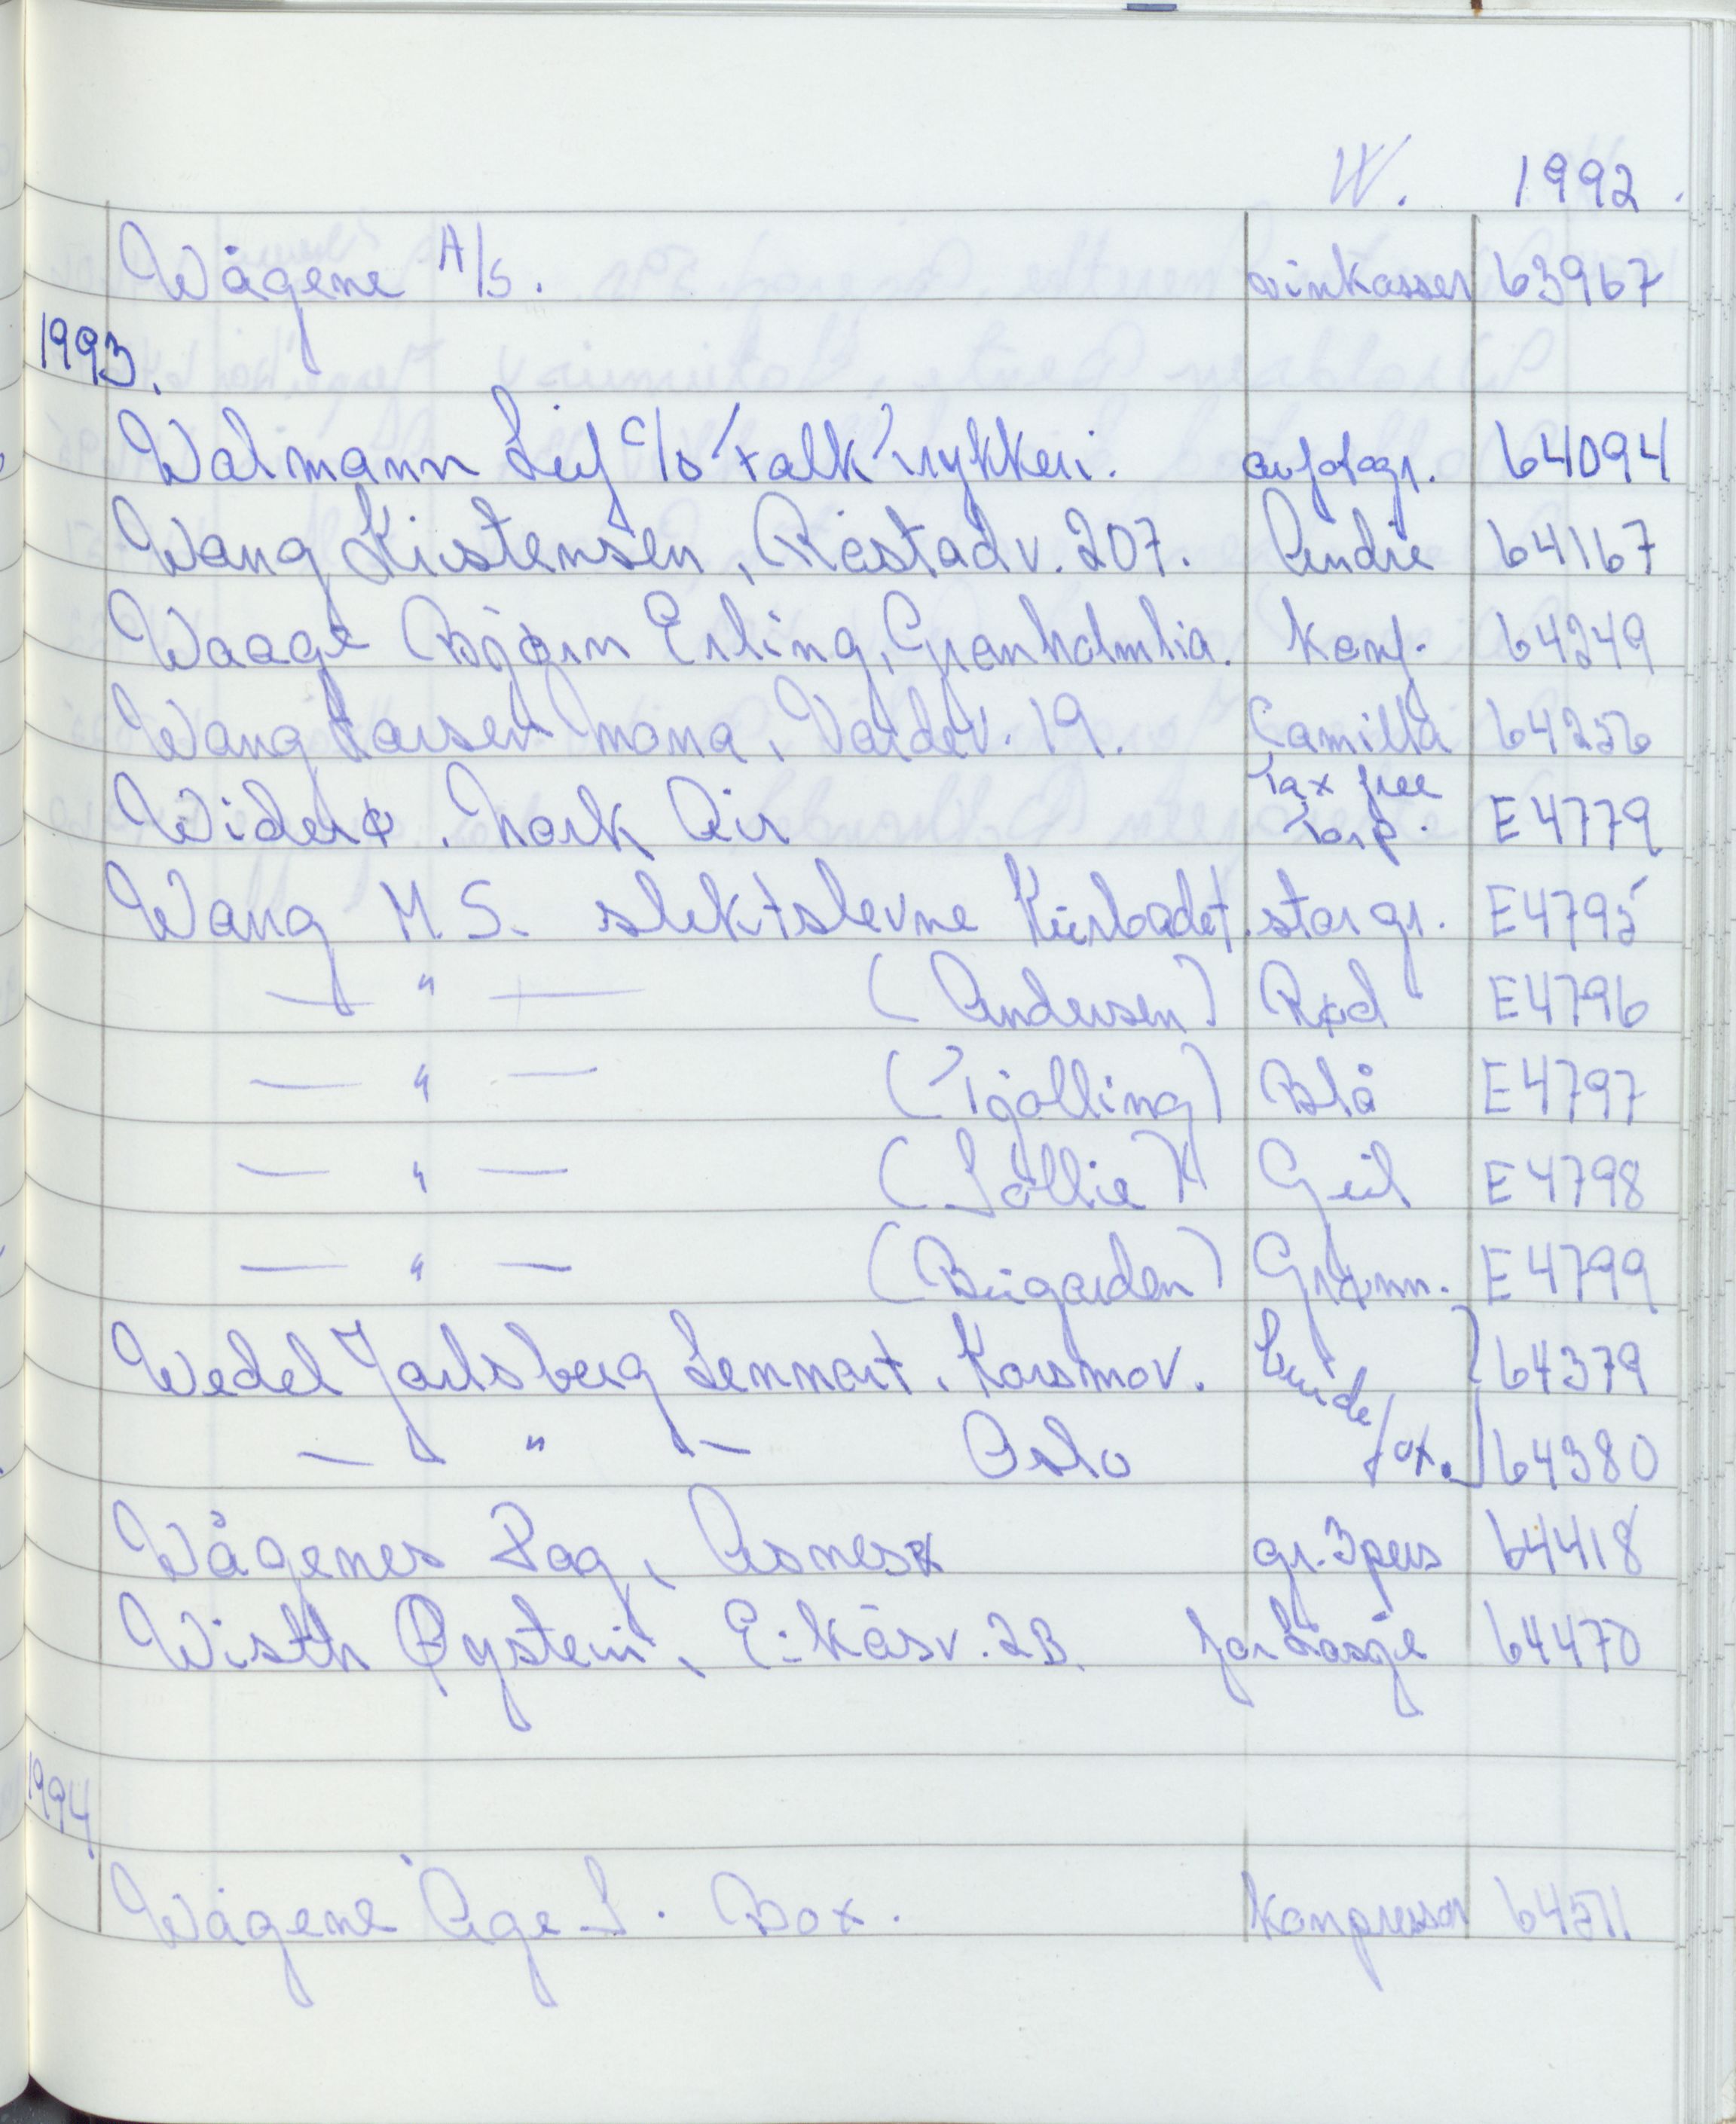 W. 1992.
Wågene A/S. vinkasser 63967
1993.
Walmann Leif c/o Falk Trykkeri. avfotogr. 64094
Wang Kristensen, Råstadv. 207. Andre 64167
Waage Bjørn Erling, Granholmlia. Konf. 64249
Wang Larsen Mona, Vardev. 19. Camilla 64256
Widerø. Norsk Air Tax free Torp. E4779
Wang M.S. slektslevne Kurbadet. stor gr. E4795
— " — (Andersen) Rød E4796
— " — (Tjølling) Blå E4797
— " — (Løllie) Gul E4798
— " — (Bugarden) Grønn. E4799
Wedel Jarlsberg Lennart, Korsmov. Brude 64379
— " — Oslo fot. 64380
Wågenes Dag, Asnes gr. 3 pers 64418
Wisth Øystein, Eikåsv. 2B. Farbasje 64470
1994
Wågene Åge L. Box. Kompressor 64511